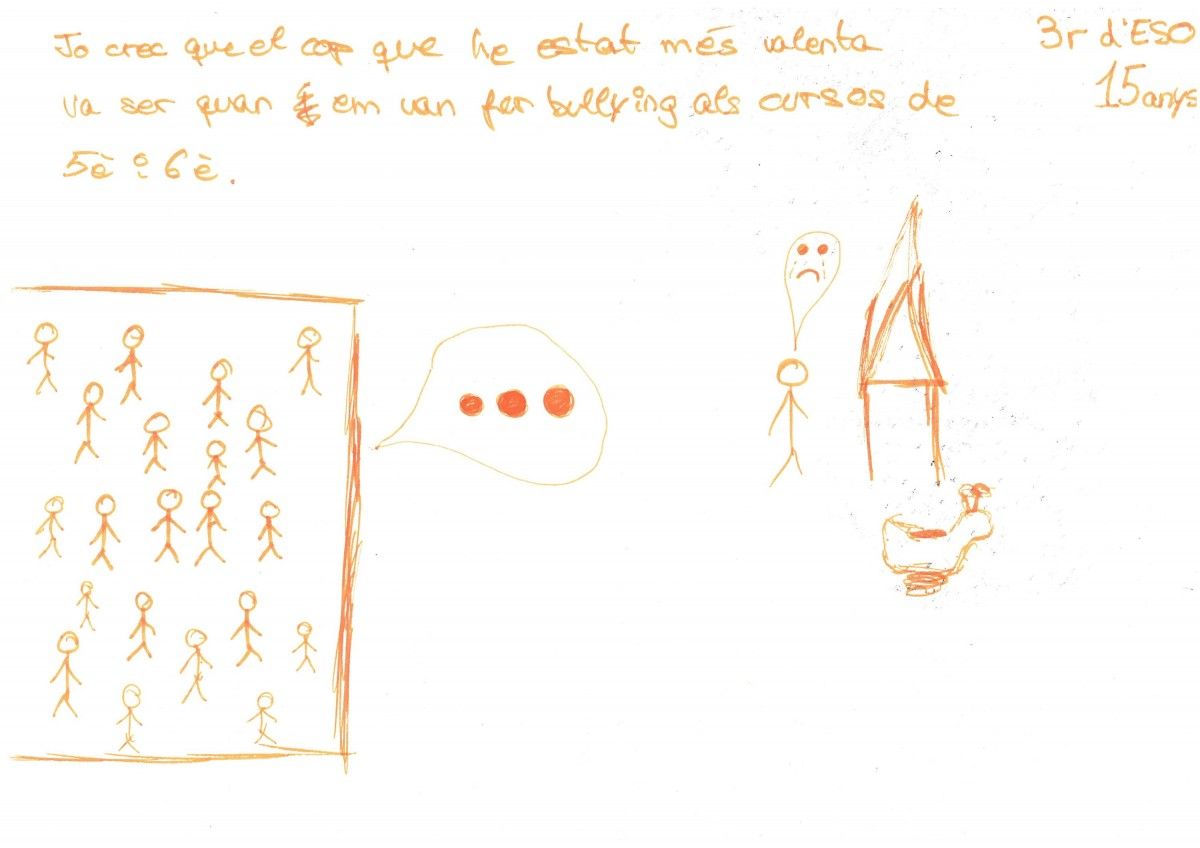 Jo crec que el cop que he estat més valenta
va ser quan em van fer bullying als cursos de
5è i 6è.
3r d'ESO
15 anys